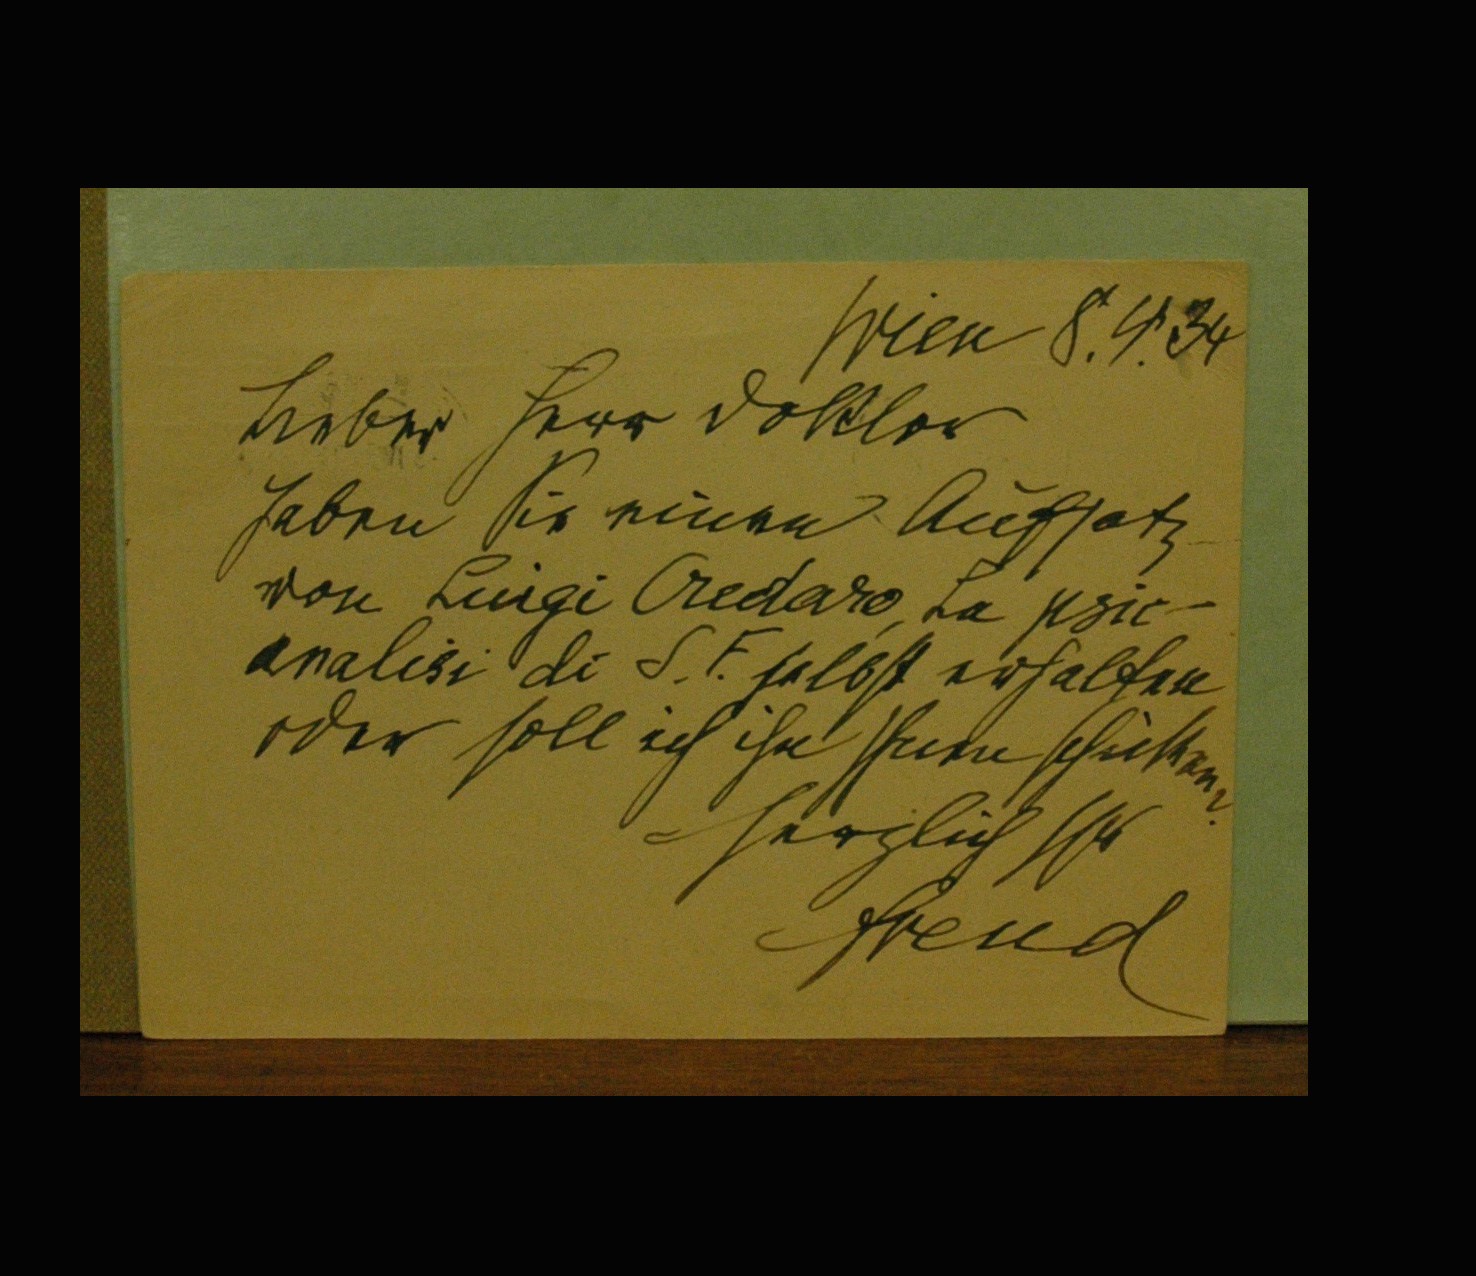 Wien 8. 4. 34
Lieber Herr Doktor
Haben Sie einen Aufsatz
von Luigi Credaro, La psic-
analisi di S. F. selbst erhalten
oder soll ich ihn Ihnen schicken?
Herzlich Ihr
Freud